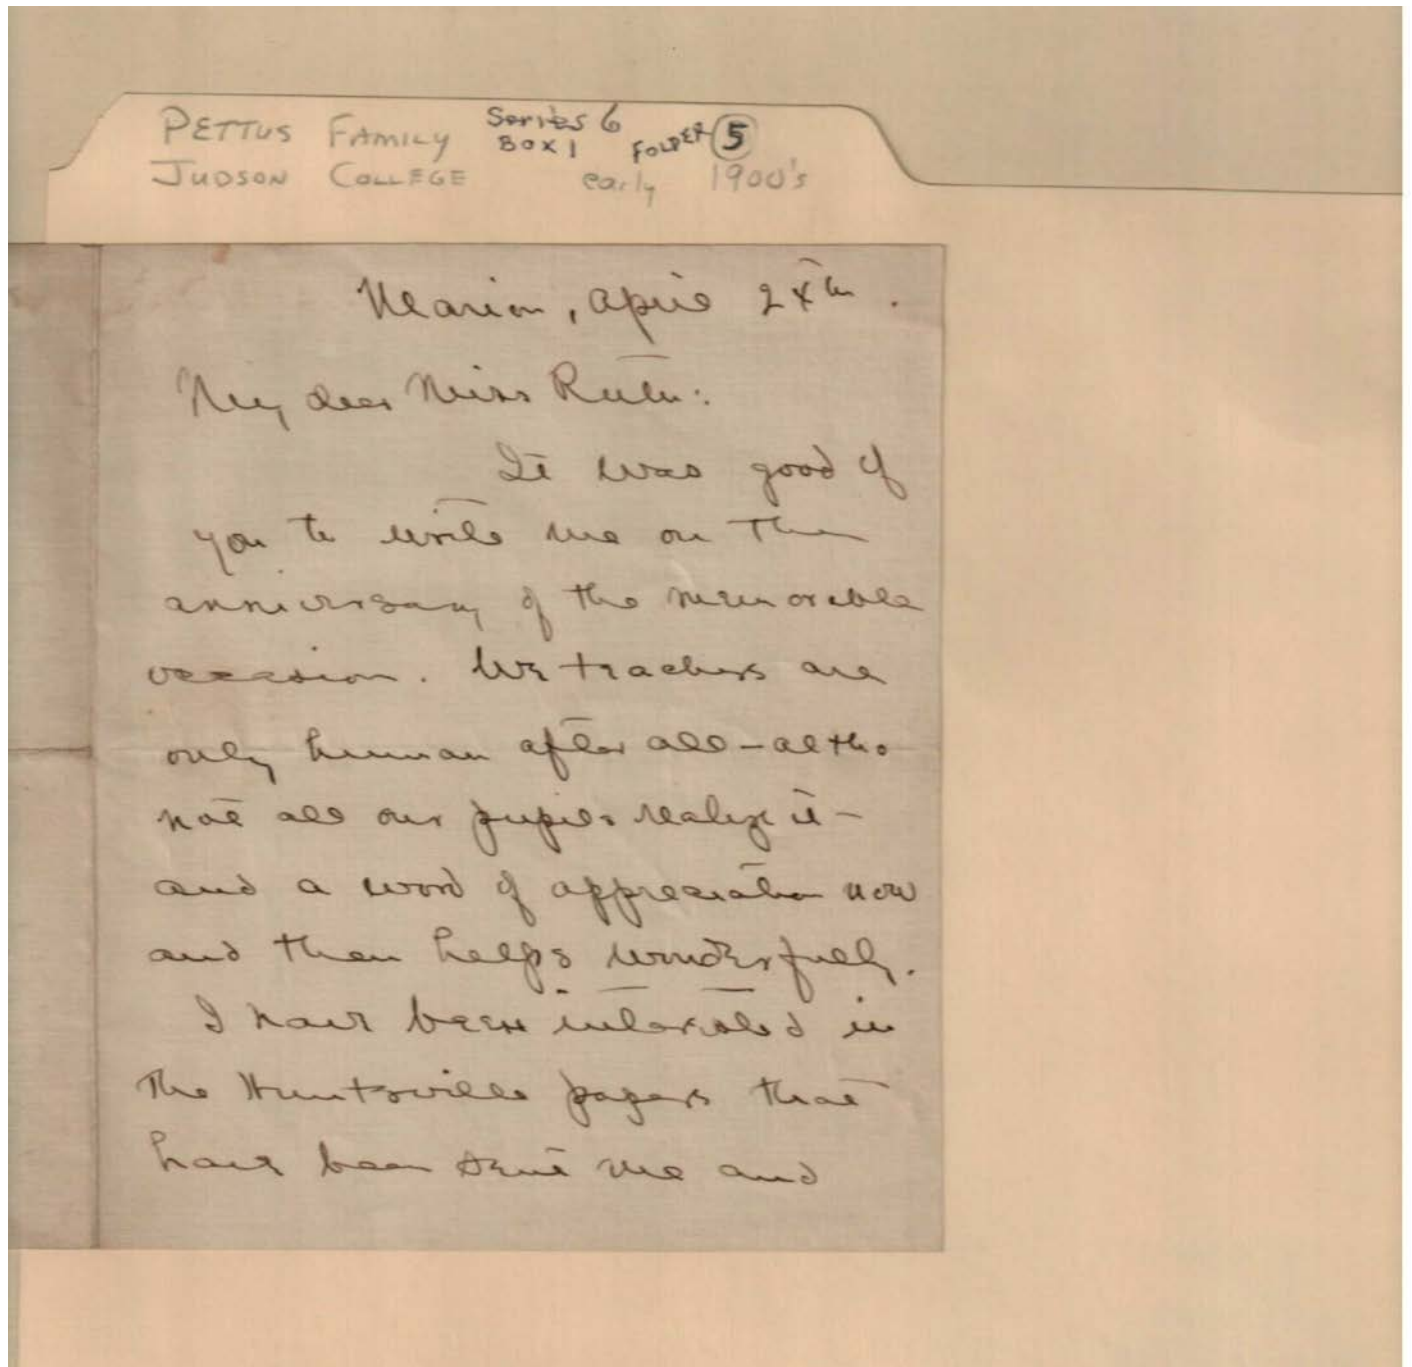 PETTUS FAMILY Series 6
BOX 1 FOLDER 5
JUDSON COLLEGE early 1900's
Marion, April 24th.
My dear Miss Ruth:
It was good of
you to write me on the
anniversary of the memorable
occasion. We teachers are
only human after all - altho
not all our pupils realize it -
and a word of appreciation now
and then helps wonderfully.
I have been interested in
the Huntsville papers that
have been sent me and